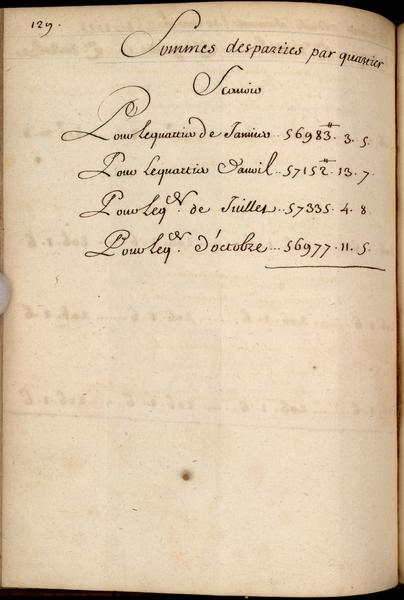 129.
Sommes desparties par quartier
Scavoir
Pour lequartier de Janvier .. 56983ᵗᵗ. 3. 5.
Pour Lequartier Davril .. 57152ᵗᵗ. 13. 7.
Pour leqer. de Juillet .. 57335. 4. 8
Pour leq.er d'octobre .. 56977. 11. 5.